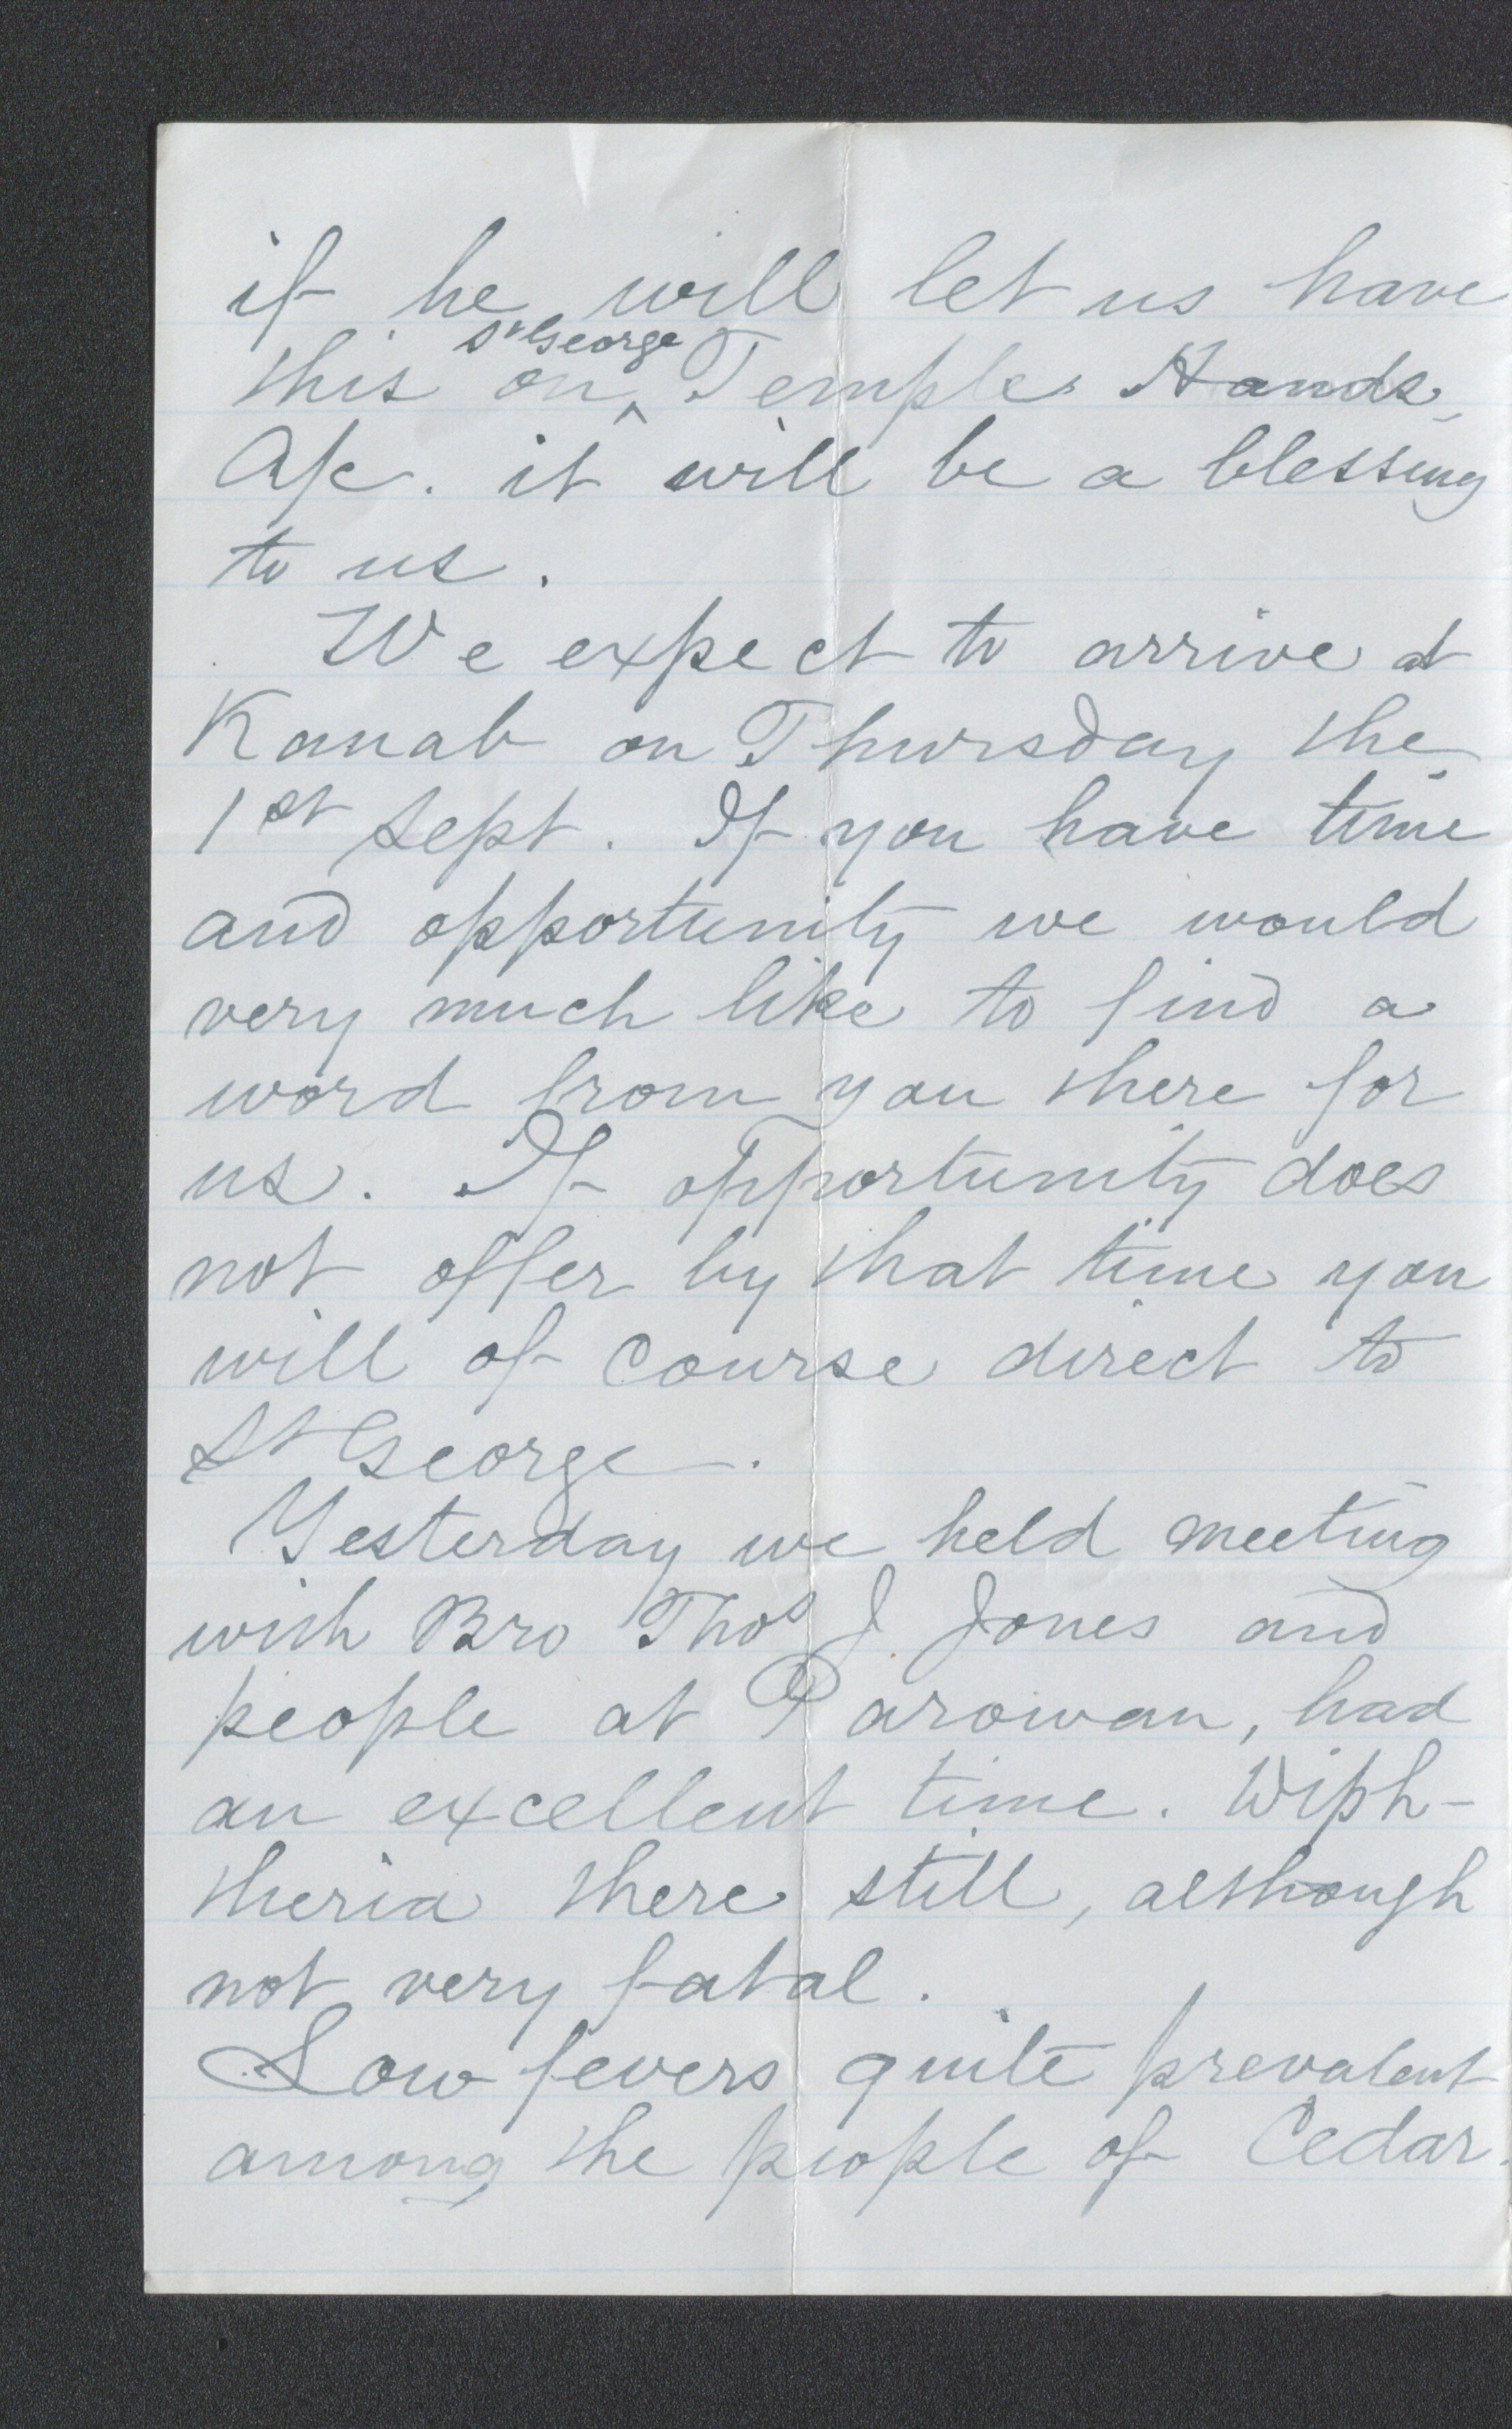 if he will let us have
this on ^St George Temple Hands
A/c. it will be a blessing
to us.
We expect to arrive at
Kanab on Thursday the
1st Sept. If you have time
and opportunity we would
very much like to find a
word from you there for
us. If opportunity does
not offer by that time you
will of course direct to
St George.
Yesterday we held meeting
with Bro Thos J Jones and
people at Parowan, had
an excellent time. Diph-
theria there still, although
not very fatal.
Low fevers quite prevalent
among the people of Cedar.